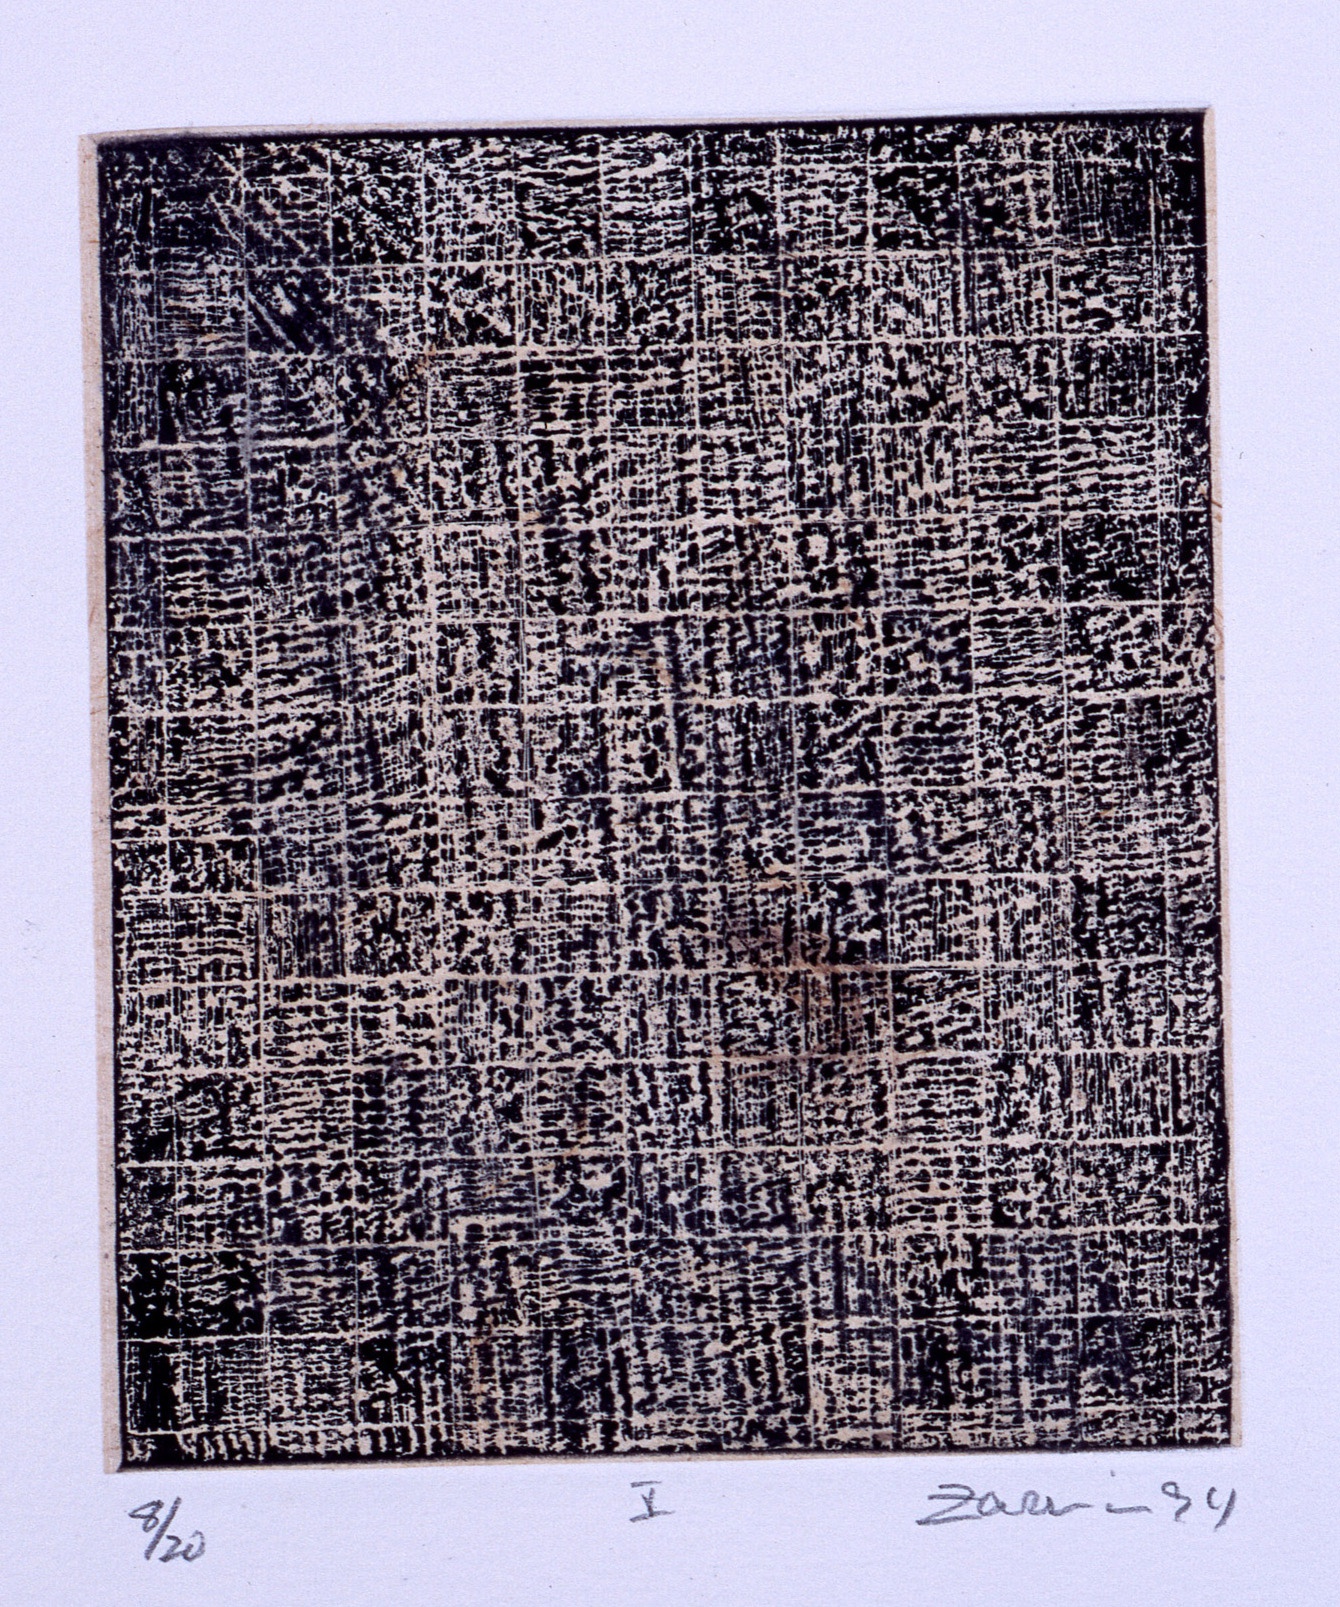 8/20 V Zarina 94